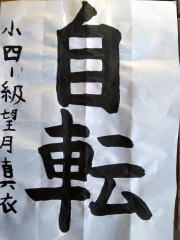 自転
小四1級望月真衣